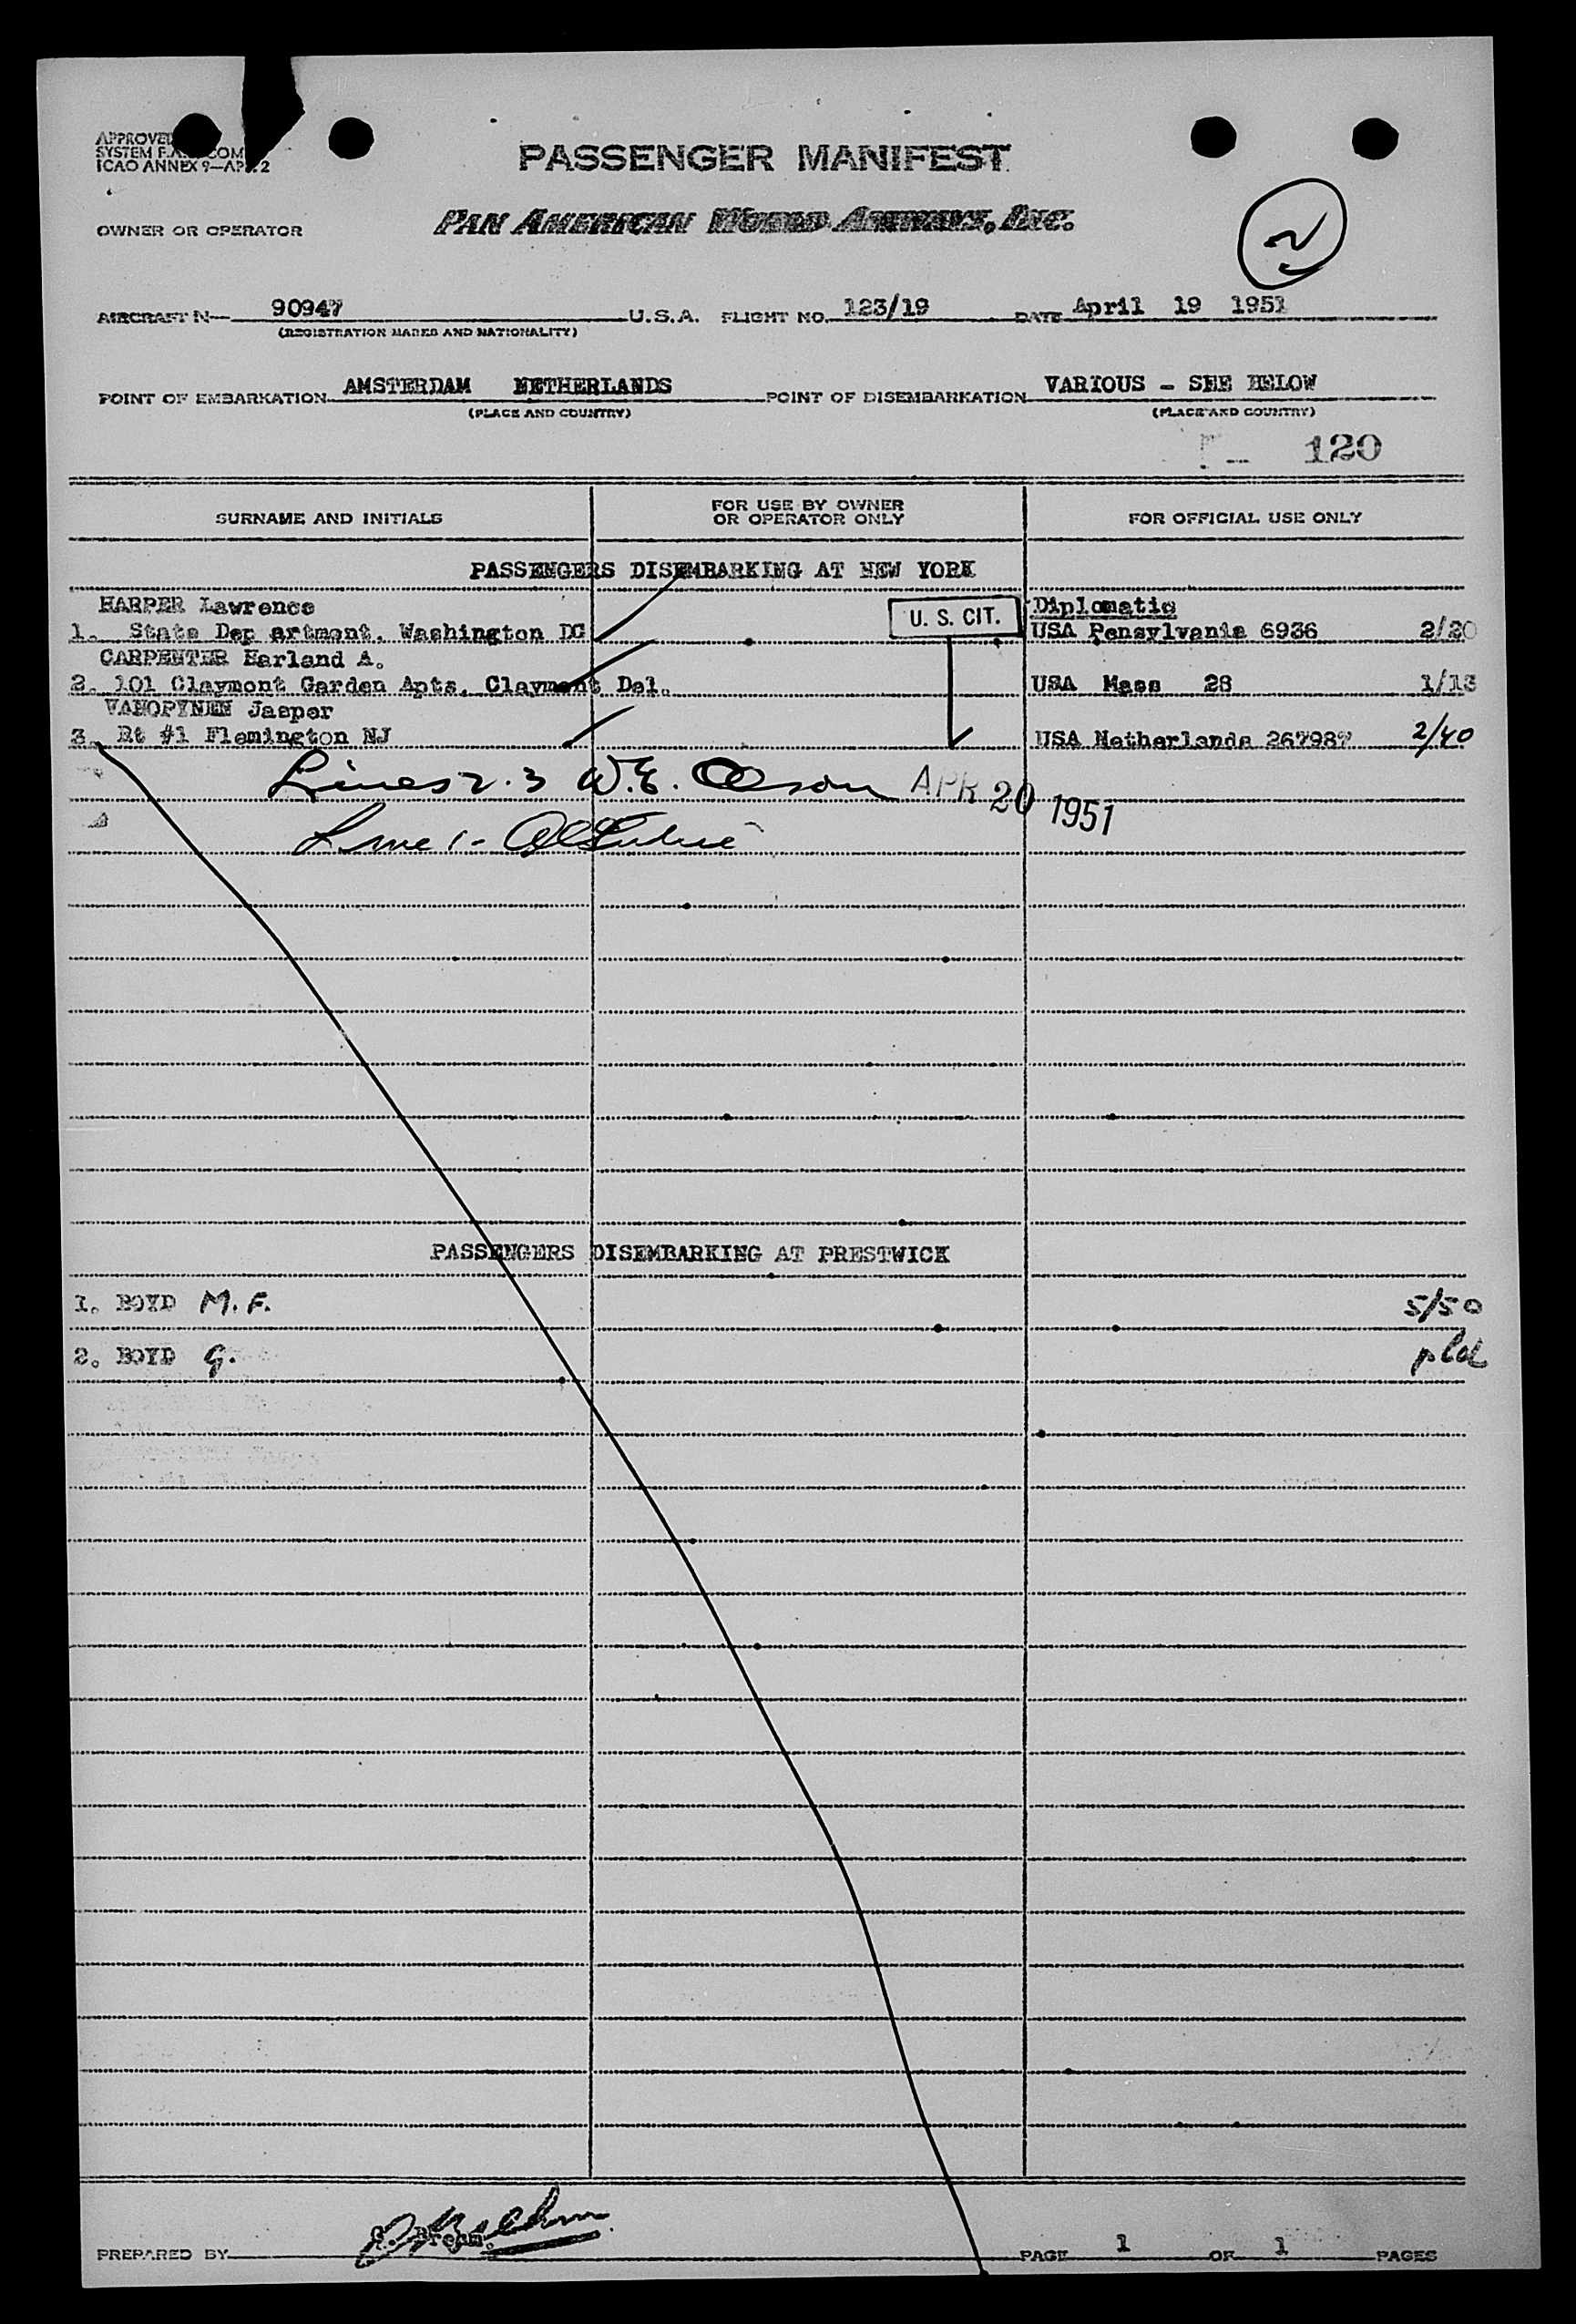 PASSENGER MANIFEST
OWNER OR OPERATOR PAN AMERICAN WORLD AIRWAYS, INC.
2
AIRCRAFT N— 90947 U.S.A. FLIGHT NO. 123/19 DATE April 19 1951
(REGISTRATION MARKS AND NATIONALITY)
POINT OF EMBARKATION AMSTERDAM NETHERLANDS POINT OF DISEMBARKATION VARIOUS - SEE BELOW
(PLACE AND COUNTRY) (PLACE AND COUNTRY)
120
SURNAME AND INITIALS
FOR USE BY OWNER
OR OPERATOR ONLY
FOR OFFICIAL USE ONLY
PASSENGERS DISEMBARKING AT NEW YORK
HARPER Lawrence U. S. CIT. Diplomatic
1. State Dep artment, Washington DC USA Pensylvania 6936 2/20
CARPENTER Harland A.
2. 101 Claymont Garden Apts, Claymont Del. USA Mass 28 1/13
Jasper
3. Rt #1 Flemington NJ USA Netherlands 267987 2/40
Lines 2.3 W.E. Olson APR 20 1951
Line 1-
PASSENGERS DISEMBARKING AT PRESTWICK
1. BOYD M.F. 5/50
2. BOYD G.
PREPARED BY PAGE 1 OF 1 PAGES